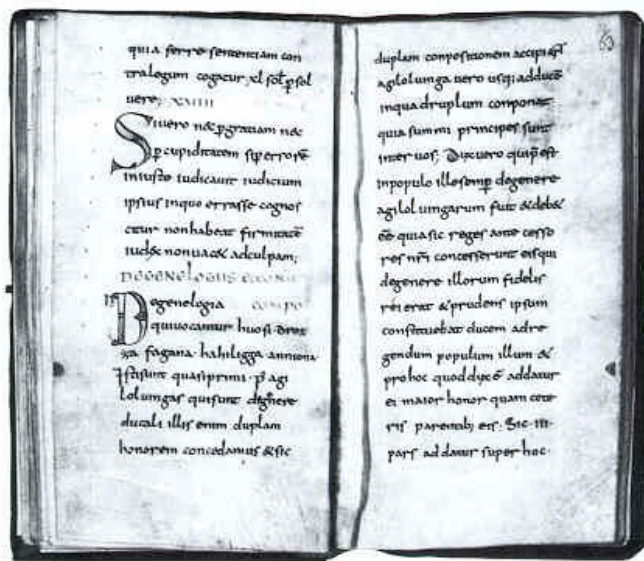 quia ferre sententiam con
tra legem cogatur, xl sol p sol
vere; XVIIII
Si vero nec p gratiam nec
p cupiditatem sed p errorē
iniuste iudicavit iudicium
ipsius in quo errasse cognos
citur non habeat firmitatē
iudex non vacet ad culpam;
DE GENELOGIIS
De genelogia
qui vocantur huosi drox
za fagana hahiligga anniona
Isti sunt quasi primi p agi
lolungas qui sunt de genere
ducali illis enim duplam
honorem concedamus & sic
63
duplam conpositionem accipiant
agilolunga vero usq; ad ducē
in quadruplum componat
quia summi principes sunt
inter vos; Dux vero qui p̄est
in populo ille semp de genere
agilolungarum fuit & deb&
eē quia sic reges ante cesso
res nri concesserunt eis qui
de genere illorum fidelis
rei erat & prudens ipsum
constituebat ducem ad re
gendum populum illum &
pro hoc quod dux ē addatur
ei maior honor quam cete
ris parentib; eis. Sic III
pars addatur super hoc